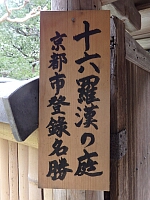 十六羅漢の庭
京都市登録名勝